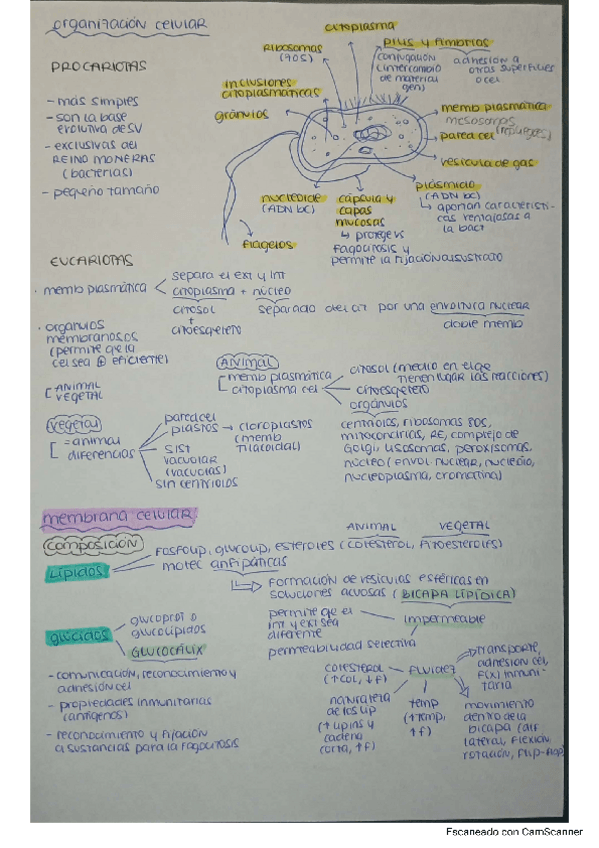 organización celular
PROCARIOTAS
- más simples
- son la base
evolutiva de SV
- exclusivas del
REINO MONERAS
(bacterias)
- pequeño tamaño
citoplasma
Ribosomas
(70S)
pilus y fimbrias
conjugación
(intercambio
de material
gen)
adhesión a
otras superficies
o cel
inclusiones
citoplasmáticas
gránulos
memb plasmática
mesosomas
(repliegues)
pared cel
vesícula de gas
plásmido
(ADN bc)
↳ aportan característi-
cas ventajosas a
la bact
nucleoide
(ADN bc)
cápsula y
capas
mucosas
↳ protege vs
fagocitosis y
permite la fijación al sustrato
flagelos
EUCARIOTAS
· memb plasmática
separa el ext y int
citoplasma + núcleo
citosol
+
citoesqueleto
separado del cit por una envoltura nuclear
doble memb
· orgánulos
membranosos
(permite que la
cel sea ⊕ eficiente)
[ ANIMAL
VEGETAL
ANIMAL
[ memb plasmática
citoplasma cel
citosol (medio en el que
tienen lugar las reacciones)
citoesqueleto
orgánulos
centriolos, ribosomas 80S,
mitocondrias, RE, complejo de
Golgi, lisosomas, peroxisomas,
núcleo (envol. nuclear, nucléolo,
nucleoplasma, cromatina)
vegetal
[ = animal
diferencias
pared cel
plastos → cloroplastos
(memb
tilacoidal)
sist
vacuolar
(vacuolas)
sin centriolos
membrana celular
composición
ANIMAL VEGETAL
Lípidos
fosfolip, glucolip, esteroles (colesterol, fitoesteroles)
molec anfipáticas
↳ formación de vesículas esféricas en
soluciones acuosas (BICAPA LIPÍDICA)
glúcidos
glucoprot o
glucolípidos
GLUCOCÁLIX
permite que el
int y ext sea
diferente
impermeable
permeabilidad selectiva
- comunicación, reconocimiento y
adhesión cel
- propiedades inmunitarias
(antígenos)
- reconocimiento y fijación
a sustancias para la fagocitosis
colesterol
(↑col, ↓f)
fluidez
transporte,
adhesión cel,
f(x) inmuni-
taria
naturaleza
de los lip
(↑ lip ins y
cadena
corta, ↑f)
temp
(↑temp,
↑f)
movimiento
dentro de la
bicapa (dif
lateral, flexión,
rotación, flip-flop)
Escaneado con CamScanner